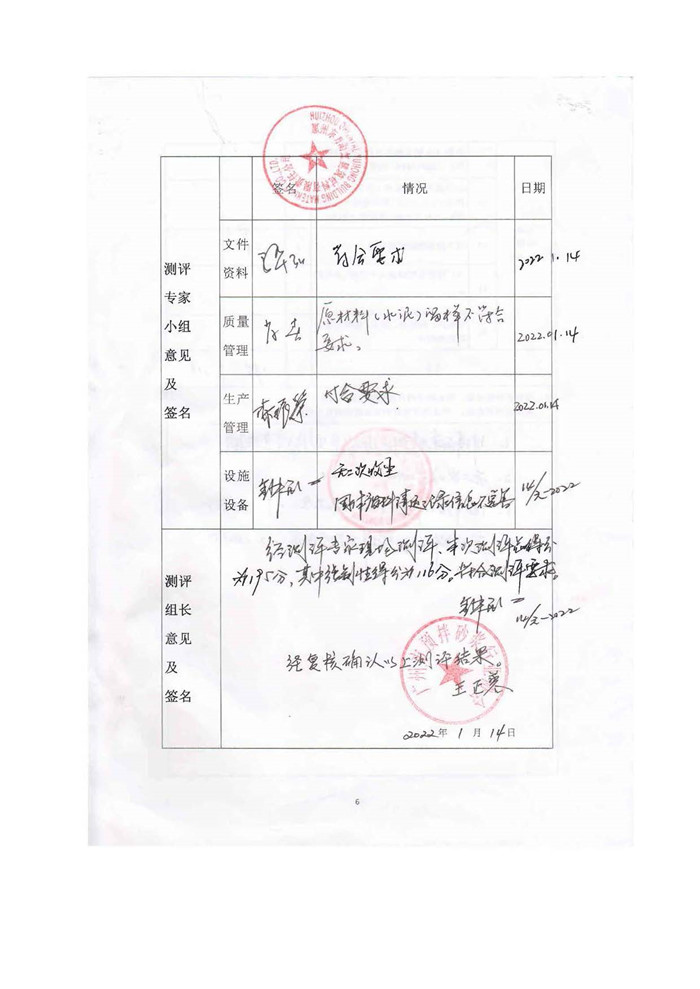 签名 情况 日期
测评专家小组意见及签名
文件资料 符合要求 2022.1.14
质量管理 原材料(水泥)留样不符合
要求。 2022.01.14
生产管理 符合要求 2022.01.14
设施设备 无二次收尘
14/元-2022
测评组长意见及签名
经测评专家现场测评、本次测评总得分
为195分,其中强制性得分为116分,符合测评要求。
14/元-2022
经复核确认以上测评结果。
2022年 1 月 14日
6